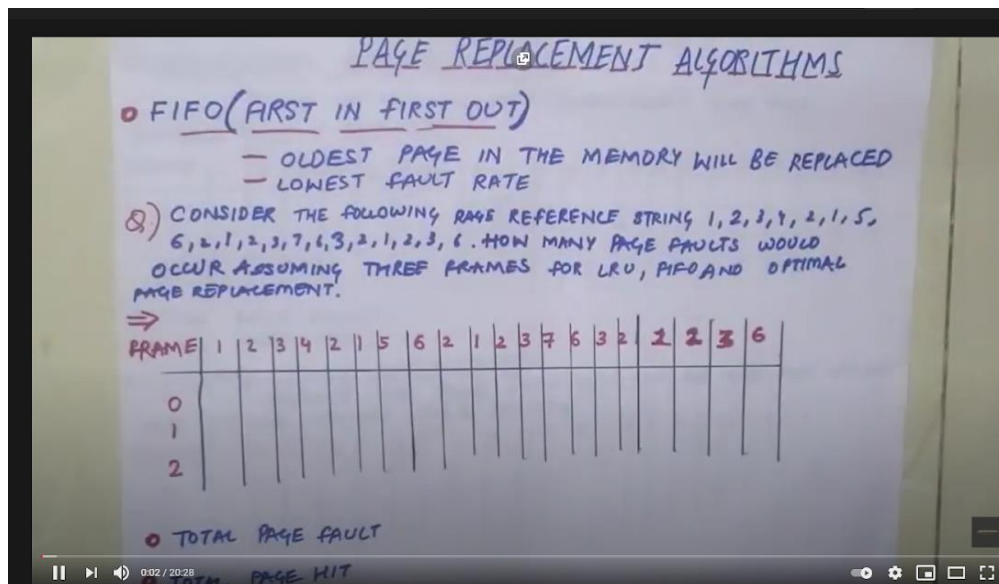 PAGE REPLACEMENT ALGORITHMS
FIFO (FIRST IN FIRST OUT)
— OLDEST PAGE IN THE MEMORY WILL BE REPLACED
— LOWEST FAULT RATE
Q.) CONSIDER THE FOLLOWING PAGE REFERENCE STRING 1, 2, 3, 4, 2, 1, 5,
6, 2, 1, 2, 3, 7, 6, 3, 2, 1, 2, 3, 6. HOW MANY PAGE FAULTS WOULD
OCCUR ASSUMING THREE FRAMES FOR LRU, FIFO AND OPTIMAL
PAGE REPLACEMENT.
⇒
FRAME 1 2 3 4 2 1 5 6 2 1 2 3 7 6 3 2 1 2 3 6
0
1
2
TOTAL PAGE FAULT
TOTAL PAGE HIT
0:02 / 20:28